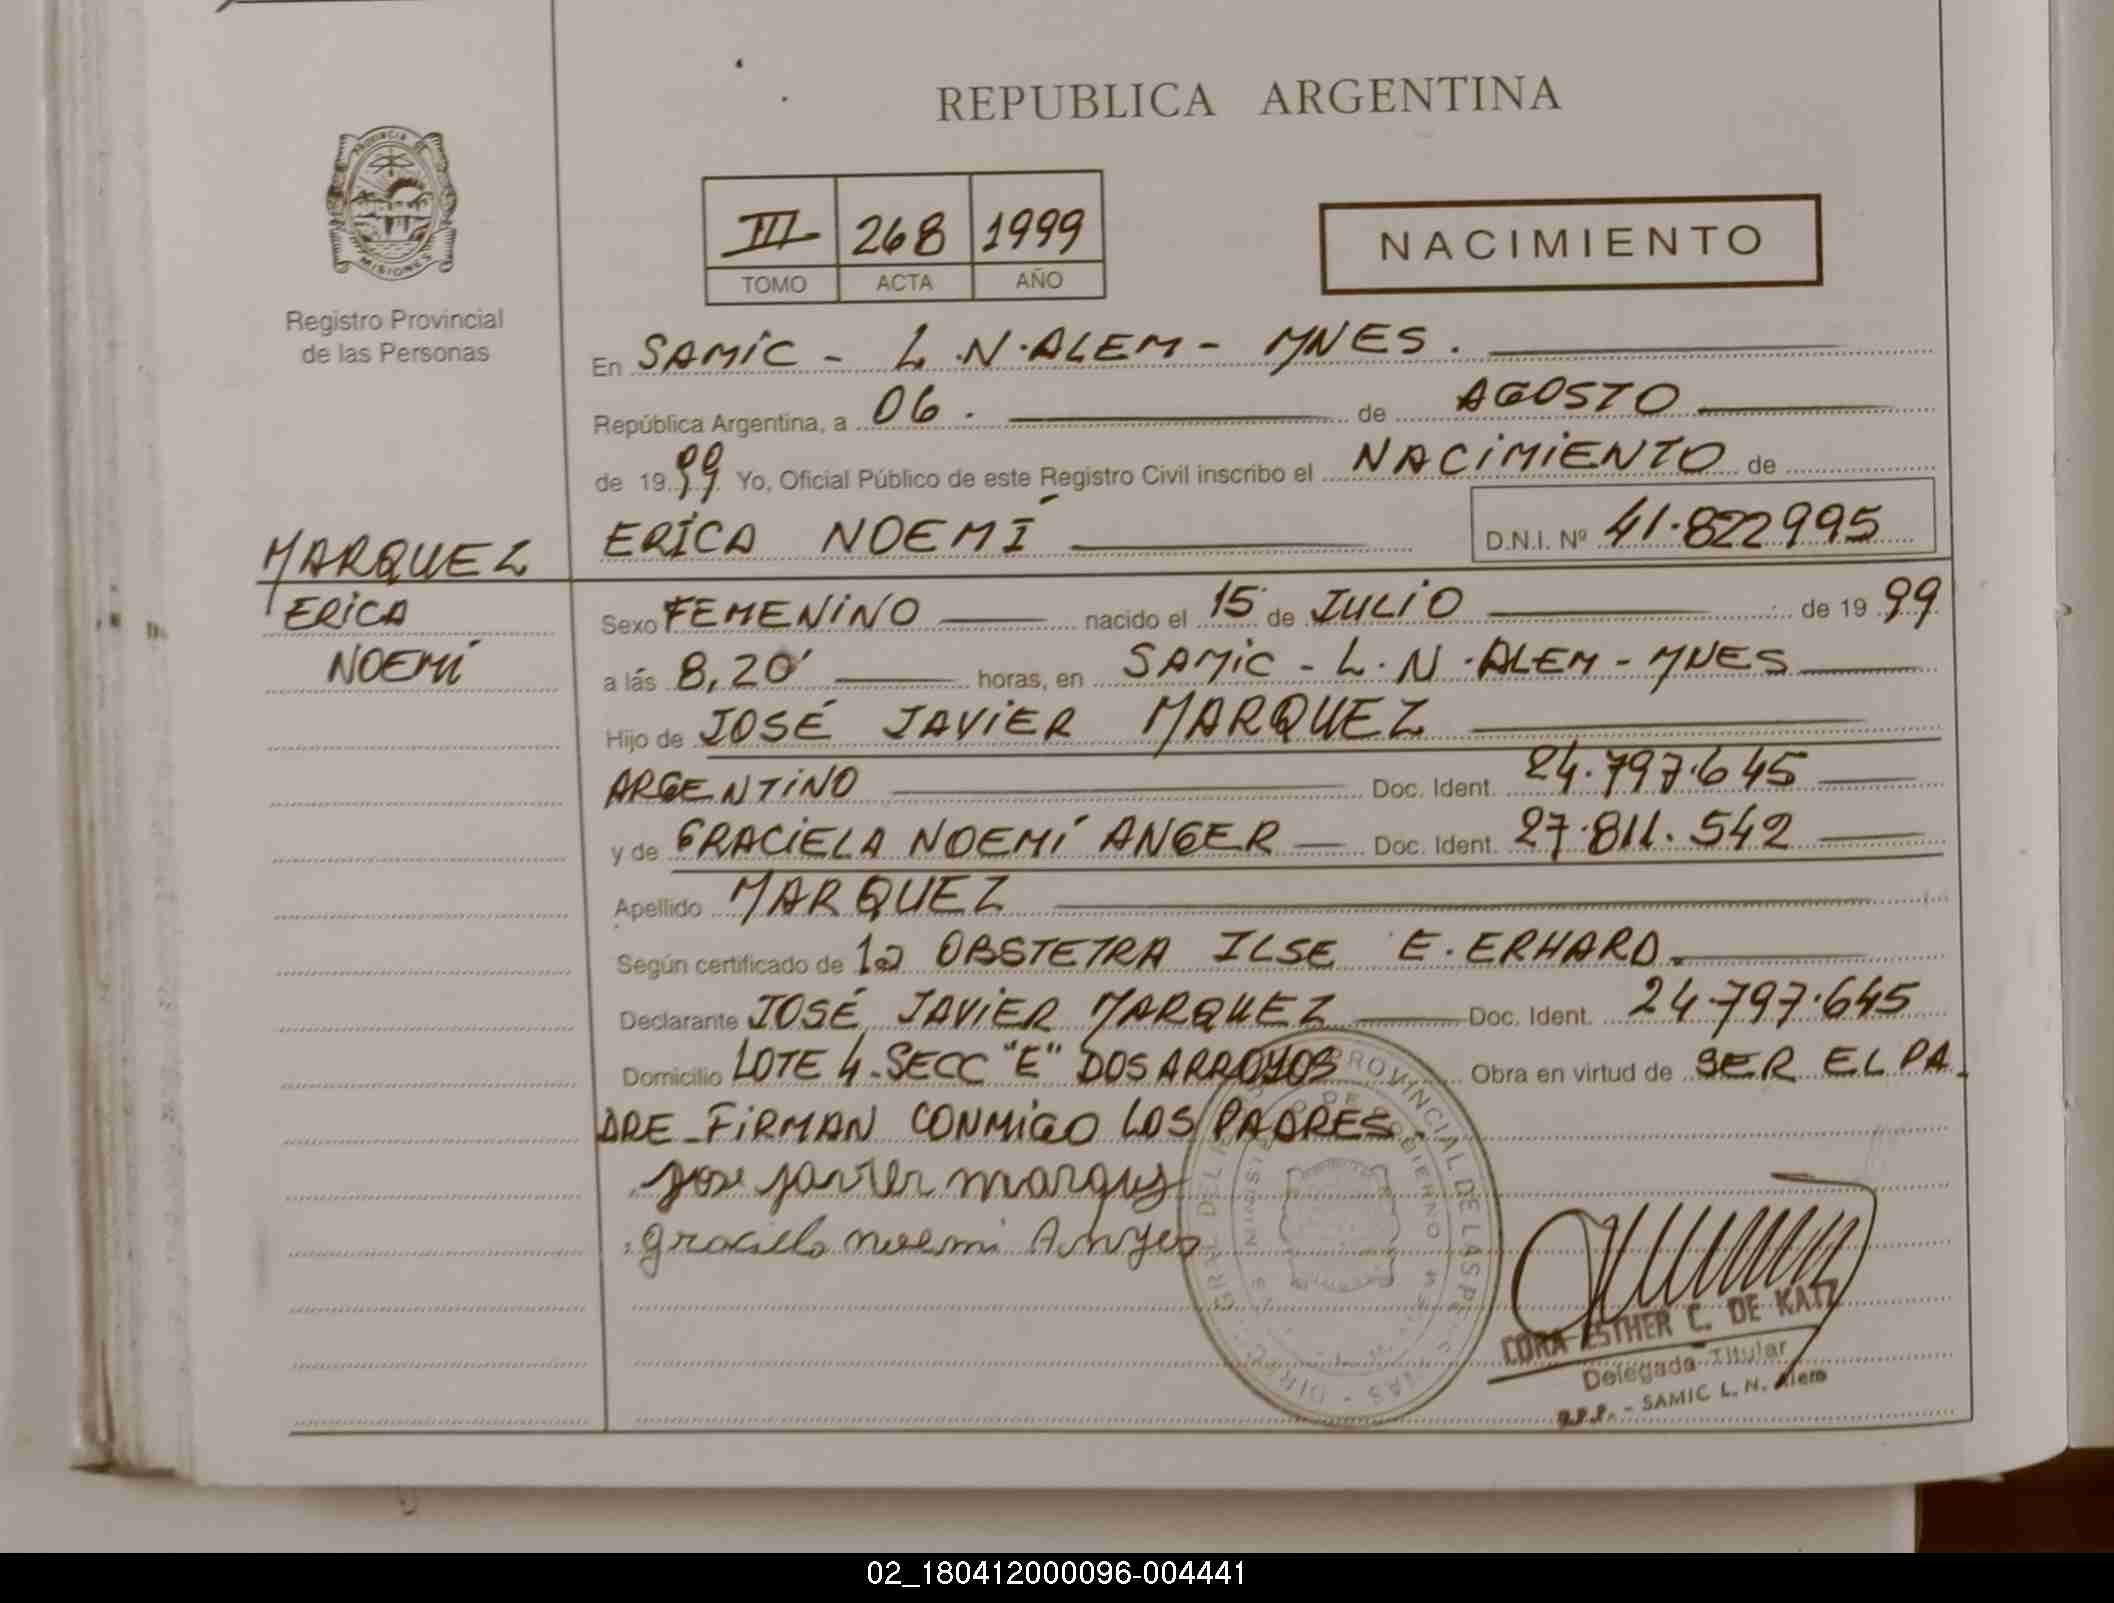 REPUBLICA ARGENTINA
PROVINCIA DE MISIONES
Registro Provincial
de las Personas
III 268 1999
TOMO ACTA AÑO
NACIMIENTO
En SAMIC - L.N.ALEM - MNES.
República Argentina, a 06. de AGOSTO
de 1999 Yo, Oficial Público de este Registro Civil inscribo el NACIMIENTO de
ERICA NOEMÍ D.N.I. Nº 41.822995
MARQUEZ
ERICA
NOEMÍ
Sexo FEMENINO nacido el 15 de JULIO de 1999
a lás 8,20' horas, en SAMIC - L.N.ALEM - MNES
Hijo de JOSÉ JAVIER MARQUEZ
ARGENTINO Doc. Ident. 24.797.645
y de GRACIELA NOEMÍ ANGER Doc. Ident. 27.811.542
Apellido MARQUEZ
Según certificado de la OBSTETRA ILSE E. ERHARD.
Declarante JOSÉ JAVIER MARQUEZ Doc. Ident. 24.797.645
Domicilio LOTE 4 - SECC "E" DOS ARROYOS Obra en virtud de SER EL PA-
DRE - FIRMAN CONMIGO LOS PADRES.
jose javier marques
graciela noemi Anger
CORA ESTHER C. DE KATZ
Delegada Titular
R.P.P. - SAMIC L. N. Alem
02_180412000096-004441